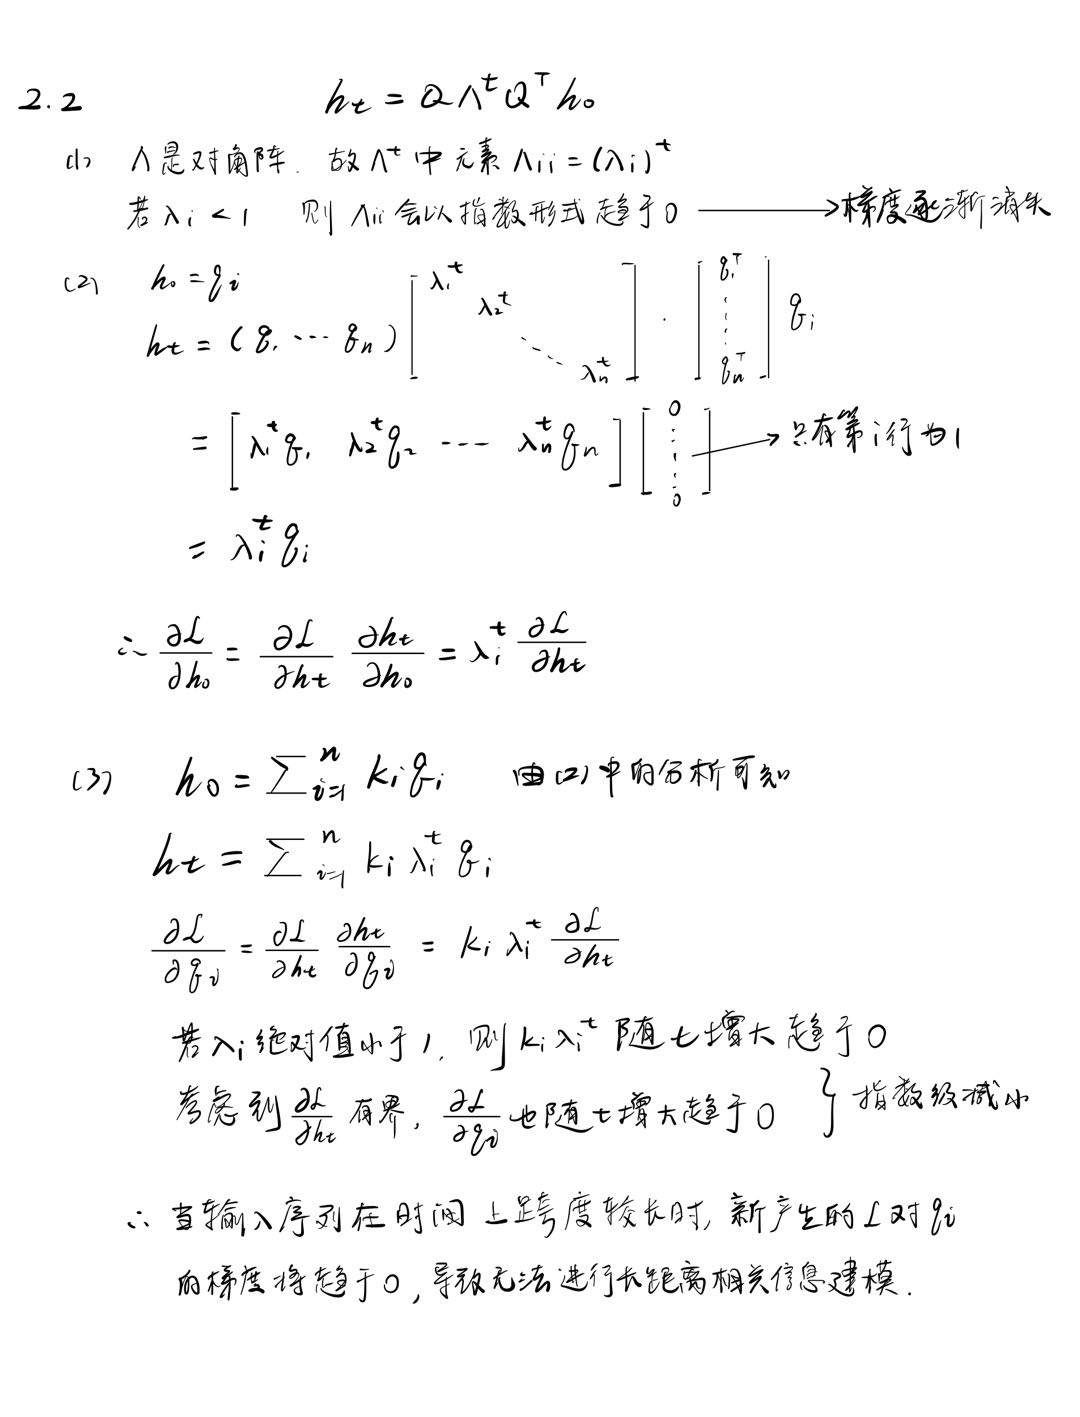 2.2 hₜ = QΛᵗQᵀh₀
(1) Λ是对角阵. 故Λᵗ中元素Λii = (λi)ᵗ
若λi < 1 则Λii会以指数形式趋于0 ⟶ 梯度逐渐消失
(2) h₀ = qi
hₜ = (q₁ ⋯ qn) [λ₁ᵗ λ₂ᵗ ⋱ λnᵗ] · [q₁ᵀ ⋮ qnᵀ] qi
= [λ₁ᵗq₁ λ₂ᵗq₂ ⋯ λnᵗqn] [0 ⋮ 1 ⋮ 0] → 只有第i行为1
= λiᵗ qi
∴ ∂L/∂h₀ = ∂L/∂hₜ ∂hₜ/∂h₀ = λiᵗ ∂L/∂hₜ
(3) h₀ = ∑ⁿᵢ₌₁ ki qi 由(2)中的分析可知
hₜ = ∑ⁿᵢ₌₁ ki λiᵗ qi
∂L/∂qi = ∂L/∂hₜ ∂hₜ/∂qi = ki λiᵗ ∂L/∂hₜ
若λi绝对值小于1, 则kiλiᵗ随t增大趋于0
考虑到∂L/∂hₜ有界, ∂L/∂qi也随t增大趋于0 } 指数级减小
∴ 当输入序列在时间上跨度较长时, 新产生的L对qi
的梯度将趋于0, 导致无法进行长距离相关信息建模.